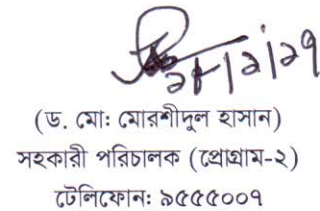 ২৮/১/১৭
(ড. মো: মোরশীদুল হাসান)
সহকারী পরিচালক (প্রোগ্রাম-২)
টেলিফোন: ৯৫৫৫০০৭